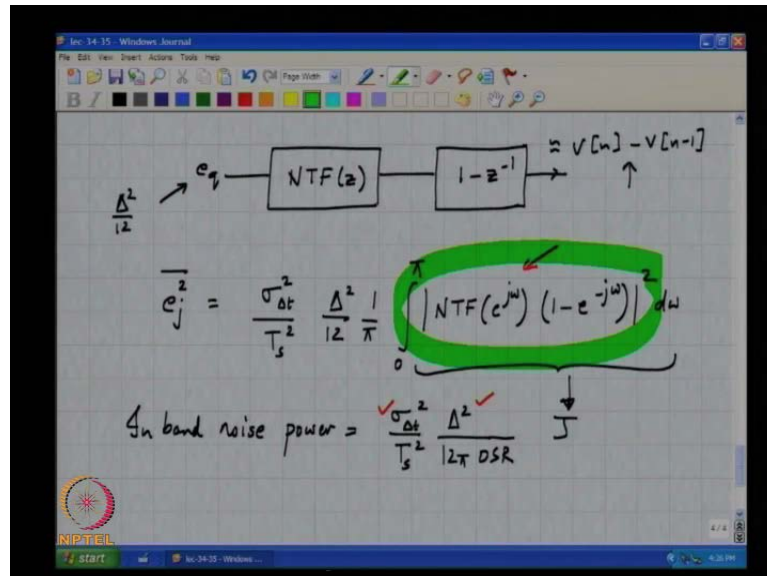 lec-34-35 - Windows Journal
File Edit View Insert Actions Tools Help
Page Width
B I
e_q NTF(z) 1 - z^{-1} ≈ V[n] - V[n-1]
Δ²/12
\overline{e_j^2} = σ_{Δt}²/T_s² Δ²/12 1/π ∫_0^π |NTF(e^{jω}) (1 - e^{-jω})|² dω
In band noise power = σ_{Δt}²/T_s² Δ²/(12π OSR) J
4/4
NPTEL
start lec-34-35 - Windows ... 4:26 PM